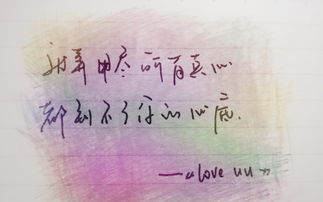 就算用尽所有真心
都到不了你的心底.
—《love uu》